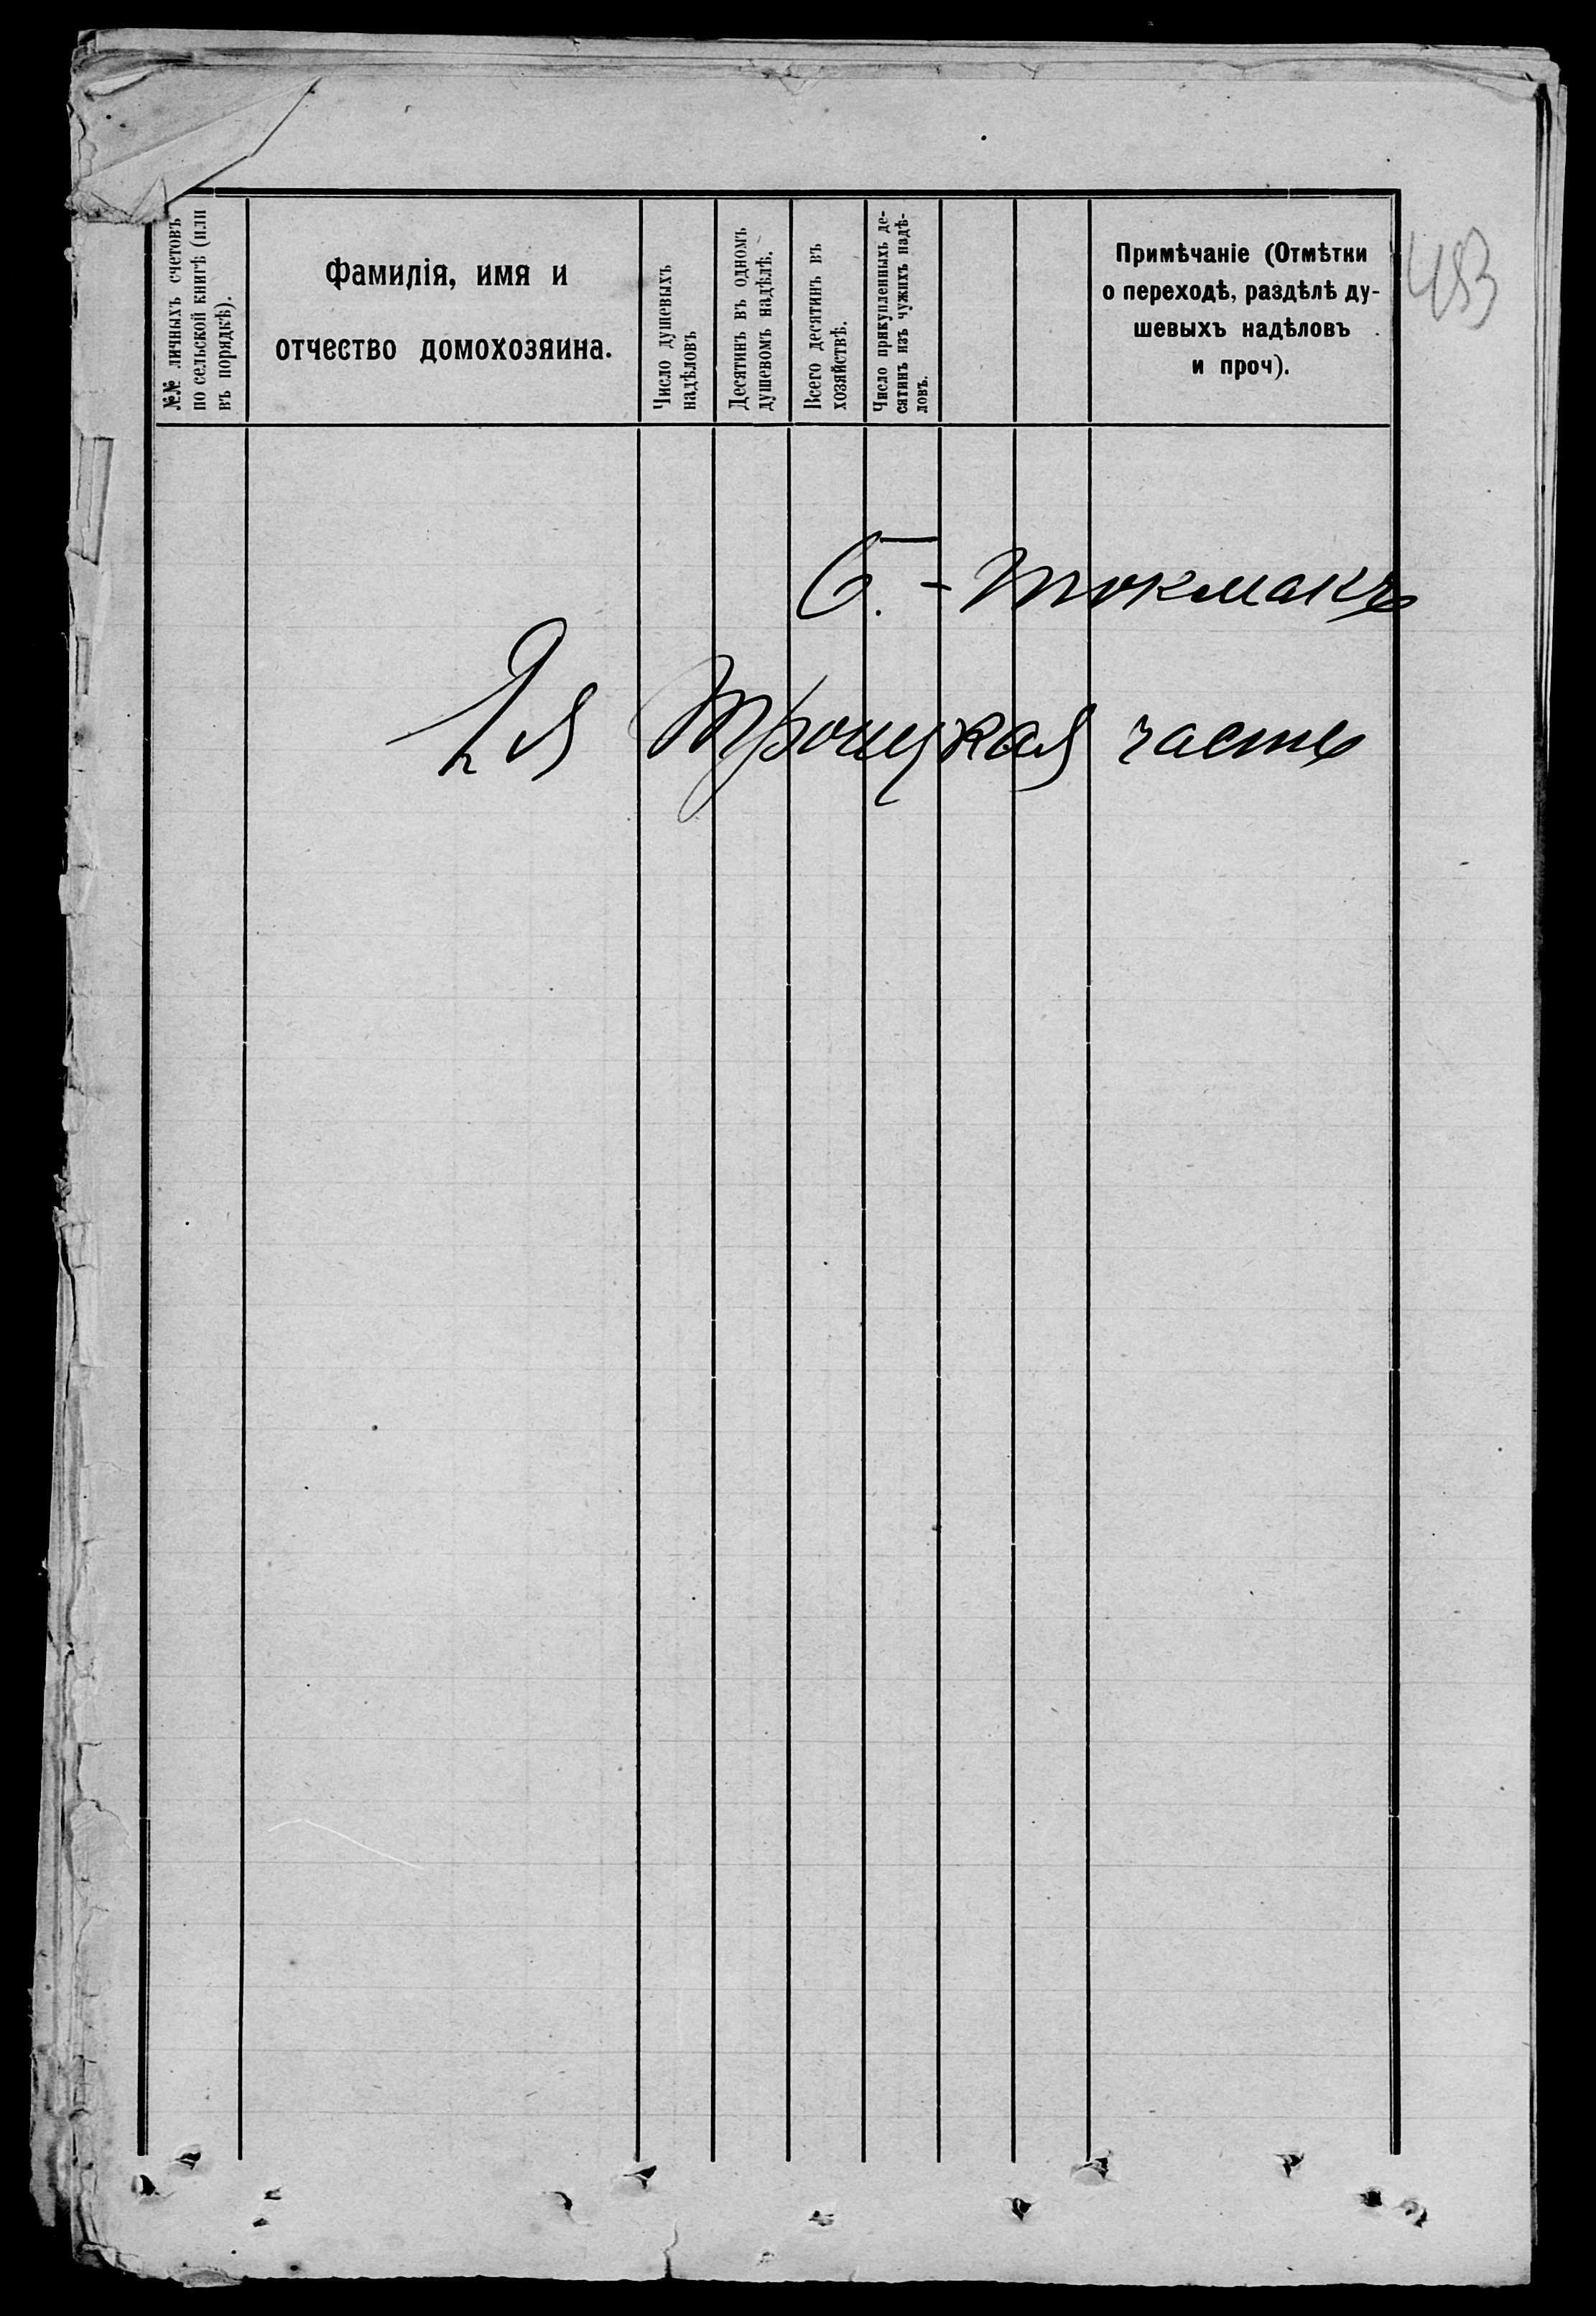 №№ личныхъ счетовъ
по сельской книгѣ (или
въ порядкѣ).
Фамилія, имя и
отчество домохозяина.
Число душевыхъ
надѣловъ
Десятинъ въ одномъ
душевомъ надѣлѣ.
Всего десятинъ въ
хозяйствѣ.
Число прикупленныхъ де-
сятинъ изъ чужихъ надѣ-
ловъ.
Примѣчаніе (Отмѣтки
о переходѣ, раздѣлѣ ду-
шевыхъ надѣловъ
и проч).
483
Б.-Токмакъ
2я Троицкая часть